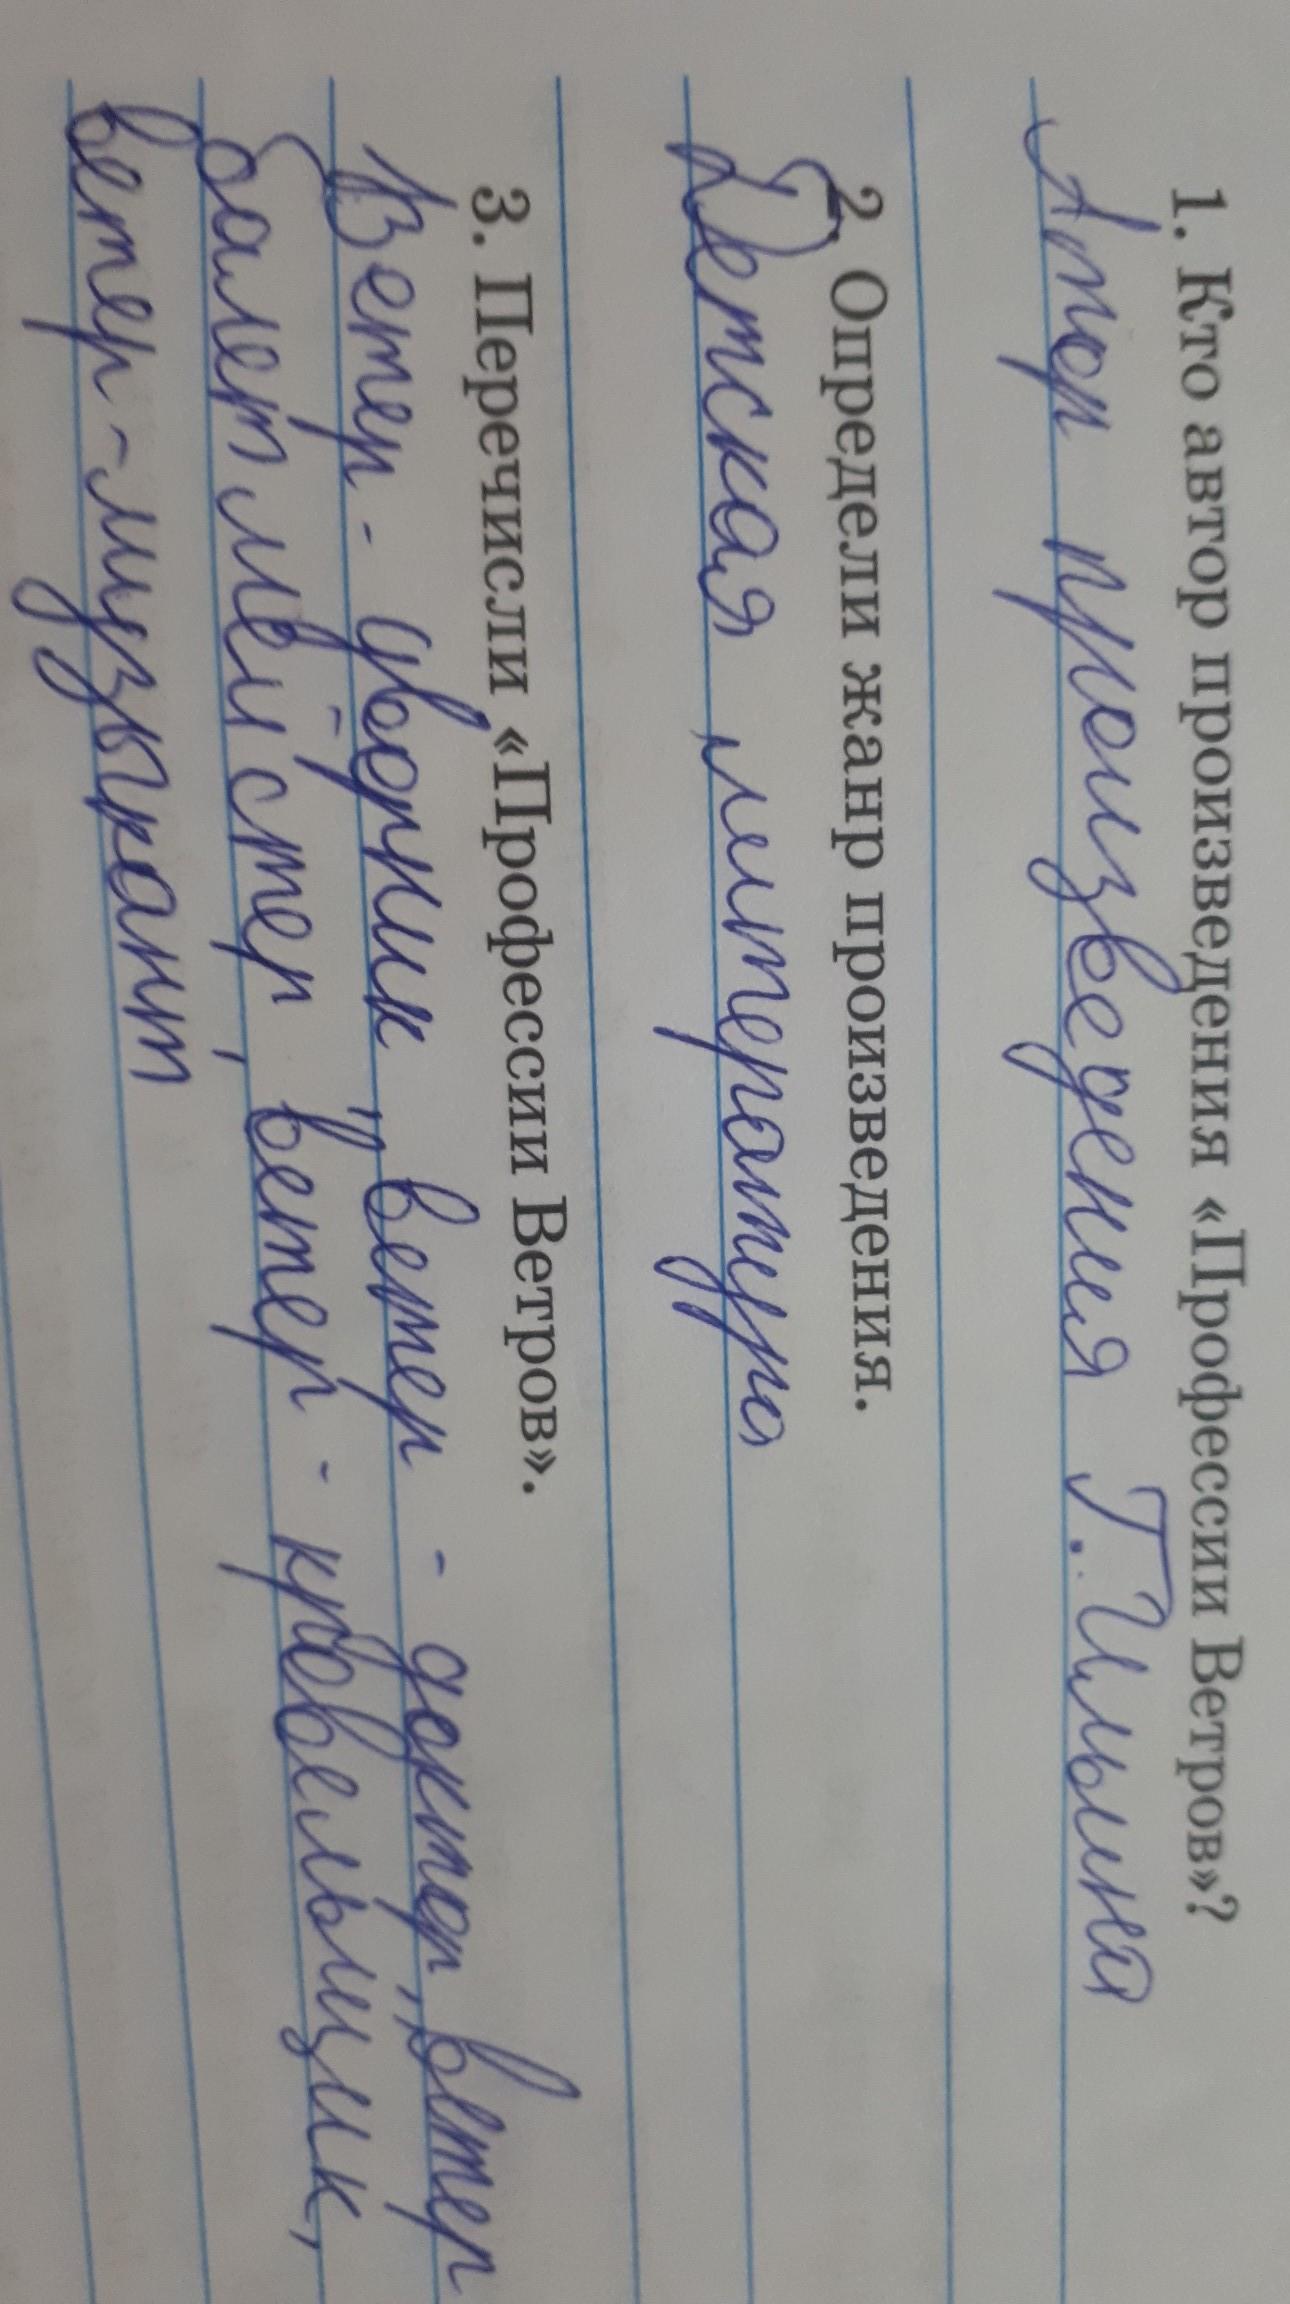 1. Кто автор произведения «Профессии Ветров»?
Атор произведения Г. Ильина
2. Определи жанр произведения.
Детская литература
3. Перечисли «Профессии Ветров».
Ветер - дворник, ветер - доктор, ветер
балетмейстер, ветер - кровельщик,
ветер - музыкант